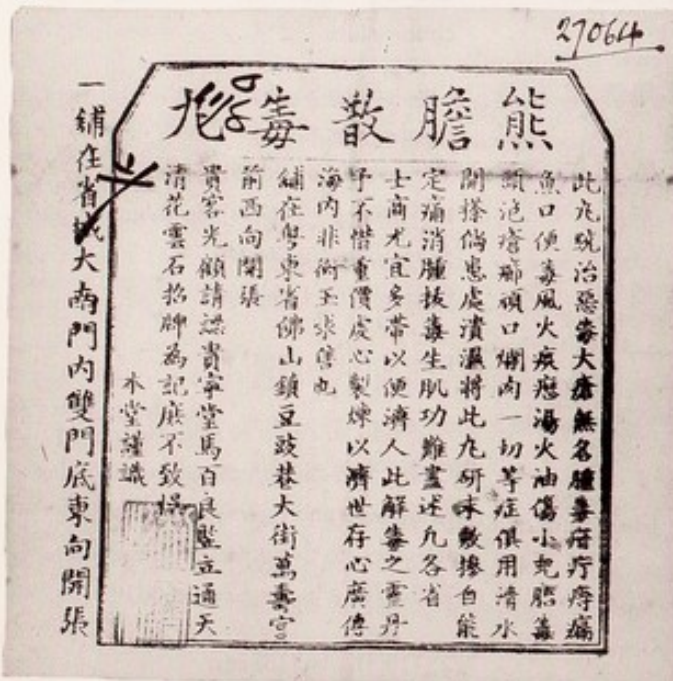 27064
熊膽散毒丸
此丸統治惡毒大瘡無名腫毒疳疔痔痛
魚口便毒風火痰瘤湯火油傷小兒胎毒
頭泡瘡癤頑口爛肉一切等症俱用清水
開搽倘患處潰濕將此丸研末敷摻自能
定痛消腫拔毒生肌功難盡述凡各省
士商尤宜多帶以便濟人此解毒之靈丹
予不惜重價虔心製煉以濟世存心廣傳
海內非衒玉求售也
舖在粵東省佛山鎮豆豉巷大街萬壽宮
前西向開張
貴客光顧請認貴寧堂馬百良監立通天
清花雲石招牌為記庶不致悮
本堂謹識
一舖在省城大南門內雙門底東向開張